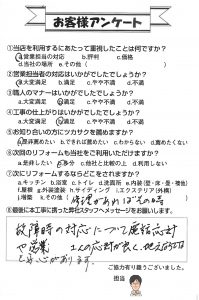 お客様アンケート
①当店を利用するにあたって重視したことは何ですか?
a.営業担当の対応 b.評判 c.価格
d.当社の場所 e.その他(
②営業担当者の対応はいかがでしたでしょうか?
a.大変満足 b.満足 c.やや不満 d.不満
③職人のマナーはいかがでしたでしょうか?
a.大変満足 b.満足 c.やや不満 d.不満
④工事の仕上がりはいかがでしたでしょうか?
a.大変満足 b.満足 c.やや不満 d.不満
⑤お知り合いの方にツカサクを薦めますか?
a.是非薦めたい b.できれば薦めたい c.わからない d.薦めたくない
⑥次回のリフォームも当社をご利用いただけますか?
a.是非したい b.多分 c.他社と比較の上 d.利用しない
⑦次にリフォームするならどこをされますか?
a.キッチン b.浴室 c.トイレ d.洗面所 e.内装(壁・床・畳・襖)
f.屋根 g.外装塗装 h.サイディング i.エクステリア(外構)
j.増築 k.その他( 修理があればその時
⑧最後に本工事に携った弊社スタッフへメッセージをお願いします。
故障時の対応について電話応対
や営業 2人の応対が良く、地元
ご協力有り難うございました。
担当